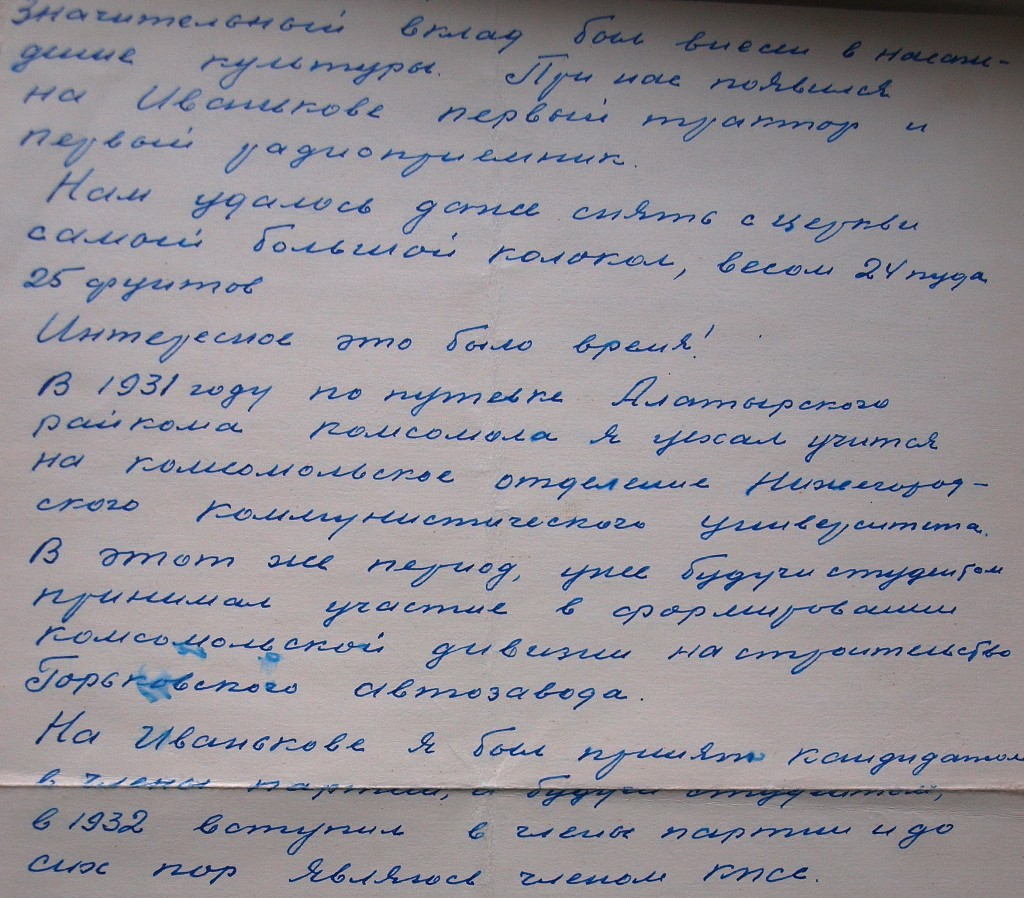 Значительный вклад был внесен в насаж-
дение культуры. При нас появился
на Иванькове первый трактор и
первый радиоприемник.
Нам удалось даже снять с церкви
самый большой колокол, весом 24 пуда
25 фунтов
Интересное это было время!
В 1931 году по путевке Алатырского
райкома комсомола я уехал учится
на комсомольское отделение Нижегород-
ского коммунистического университета.
В этот же период, уже будучи студентом
принимал участие в формировании
комсомольской дивизии на строительство
Горьковского автозавода.
На Иванькове я был принят кандидатом
в члены партии, а будучи студентом,
в 1932 вступил в члены партии и до
сих пор являюсь членом КПСС.